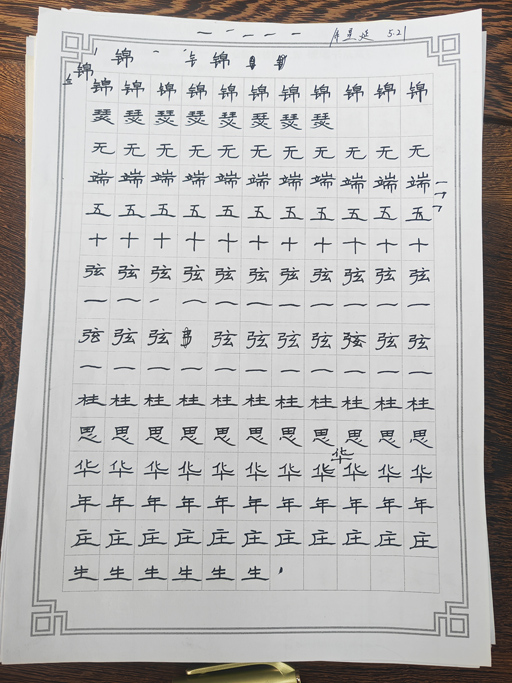 5.21
锦 锦
锦
锦锦锦锦锦锦锦锦锦锦锦
瑟瑟瑟瑟瑟瑟瑟瑟
无无无无无无无无无无无
端端端端端端端端端端端
五五五五五五五五五五五
十十十十十十十十十十十
弦弦弦弦弦弦弦弦弦弦弦
一一一一一一一一一一一
弦弦弦弦弦弦弦弦弦弦
一一一一一一一一一一一
柱柱柱柱柱柱柱柱柱柱柱
思思思思思思思思思思思
华
华华华华华华华华华华华
年年年年年年年年年年年
庄庄庄庄庄庄庄庄庄庄庄
生生生生生生